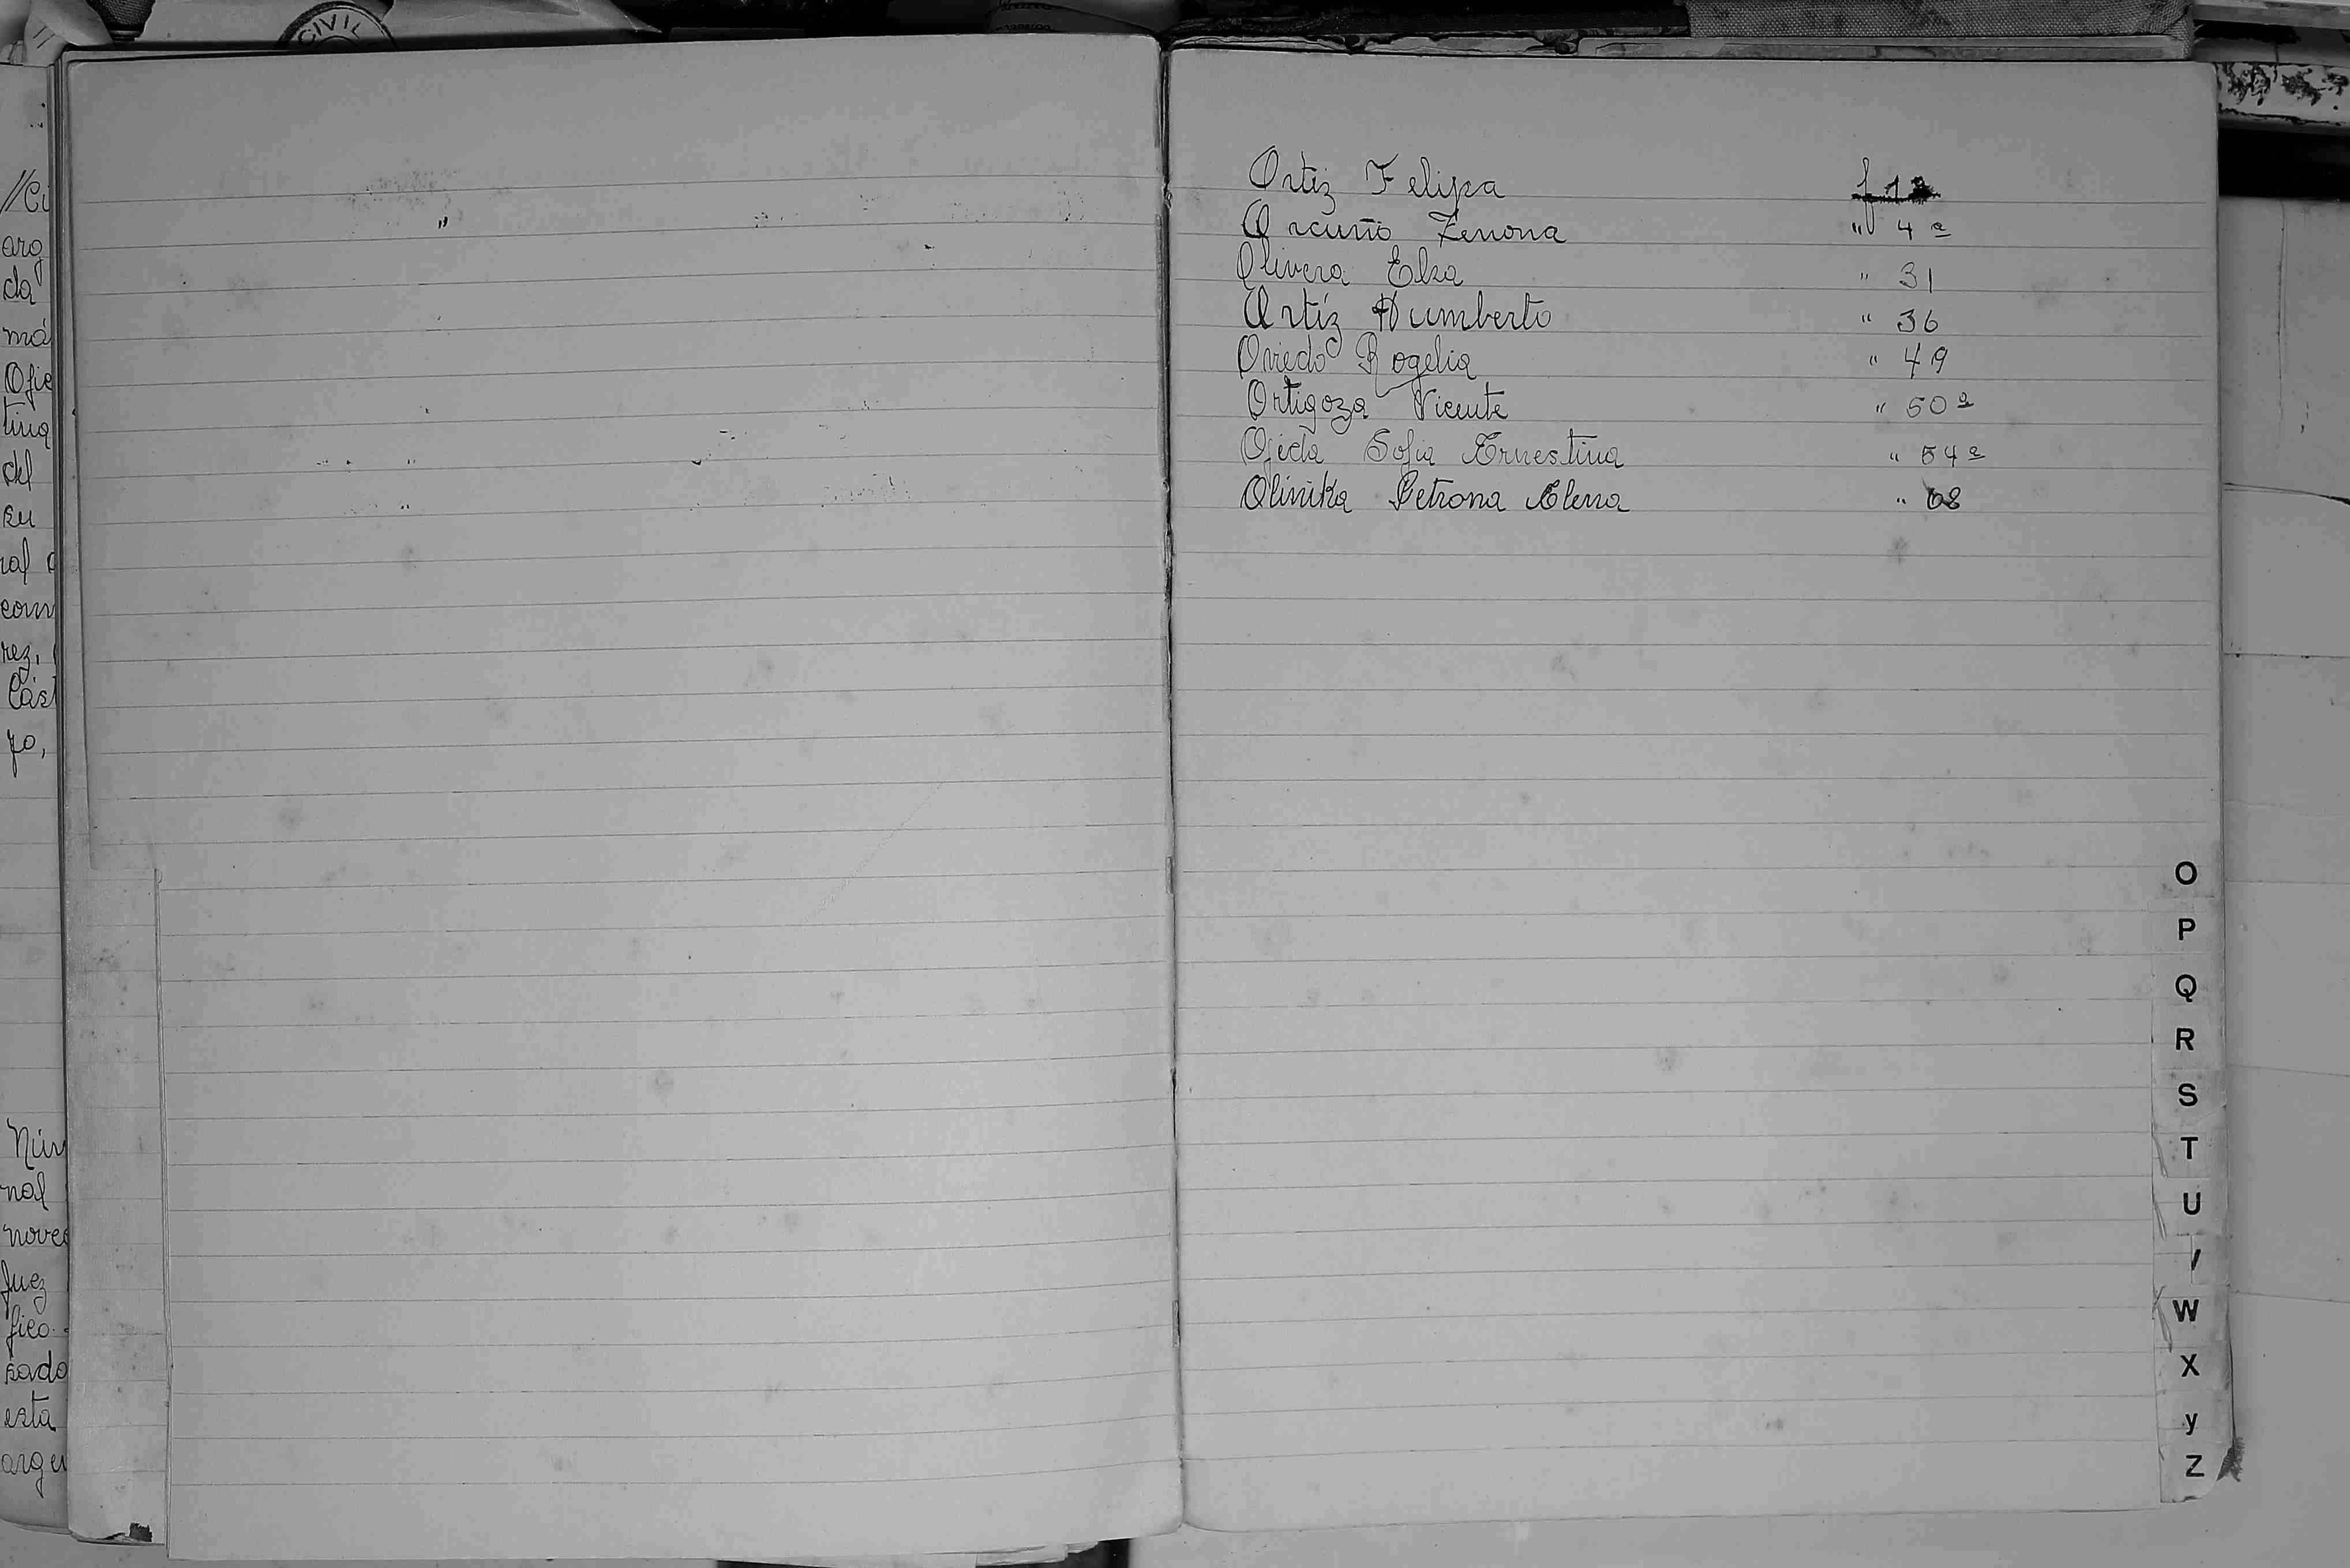 CIVIL
//Ci
arg
da
má
Ofic
tina
del
su
ral
com
rez,
Cást
yo,
Núm
nal
novec
Juez
fico
sado
esta
argen
Ortiz Felipa f 1ª
Orcuño Zenona " 4 a
Olivera Elsa " 31
Ortíz Humberto " 36
Oviedo Rogelia " 49
Ortigoza Vicente " 50 a
Ojeda Sofia Ernestina " 54 a
Olinika Petrona Elena " 68
O
P
Q
R
S
T
U
W
X
y
Z